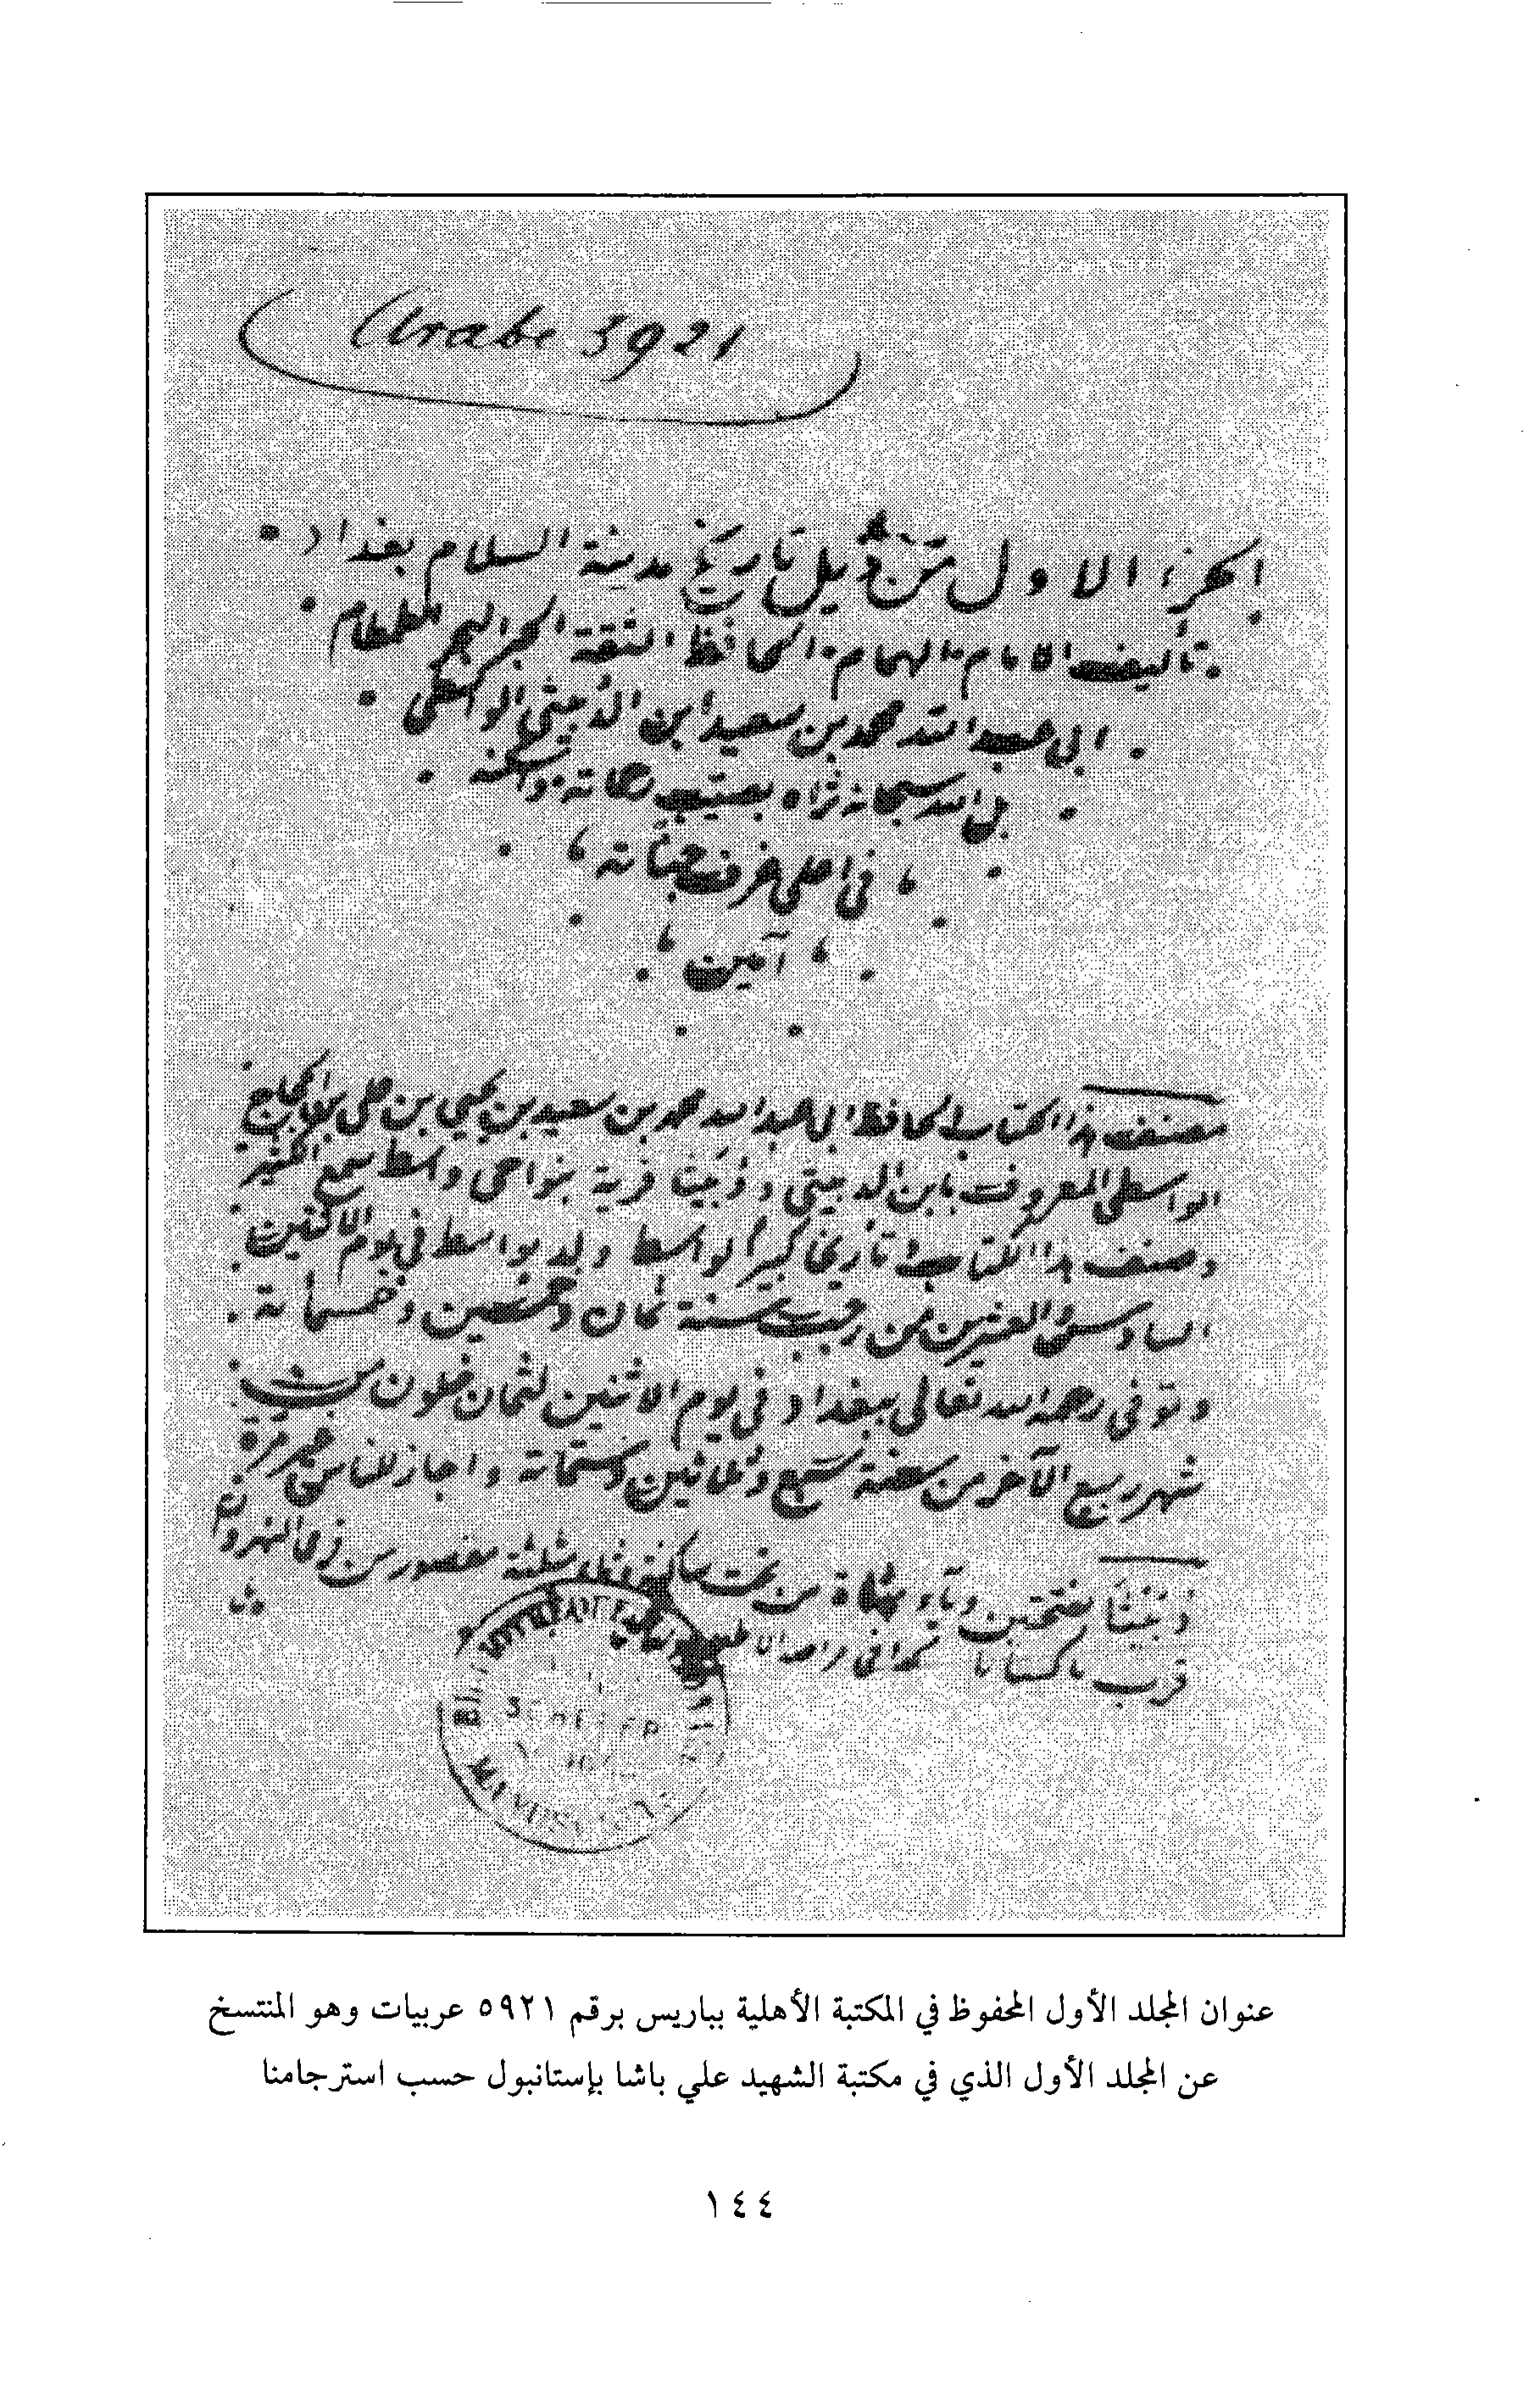 Arabe 5921
الجزء الاول من ذيل تاريخ مدينة السلام بغداد
تأليف الامام الهمام الحافظ الثقة الحبر البحر الطمطام
ابى عبد الله محمد بن سعيد ابن الدبيثى الواسطى
بل الله سبحانه ثراه بصيب رحماته واسكنه
فى اعلى غرف جناته
آمين
مصنف هذا الكتاب الحافظ ابى عبد الله محمد بن سعيد بن يحيى بن على بن الحجاج
الواسطى المعروف بابن الدبيثى ودُبَيثا قرية بنواحى واسط سمع الكثير
وصنف هذا الكتاب وتاريخا كبيرا لواسط ولد بواسط فى يوم الاثنين
السادس والعشرين من رجب سنة ثمان وخمسين وخمسمائة
وتوفى رحمه الله تعالى ببغداد فى يوم الاثنين لثمان خلون من
شهر ربيع الآخر من سنة سبع وثلاثين وستمائة واجاز للناس غير مرة
دَبَيْثَا بفتحتين وياء مثناة من تحت ساكنة وثاء مثلثة مقصور من قرى النهروان
قرب باكسايا كما فى مراصد الاطلاع
عنوان المجلد الأول المحفوظ في المكتبة الأهلية بباريس برقم ٥٩٢١ عربيات وهو المنتسخ
عن المجلد الأول الذي في مكتبة الشهيد علي باشا بإستانبول حسب استرجامنا
١٤٤